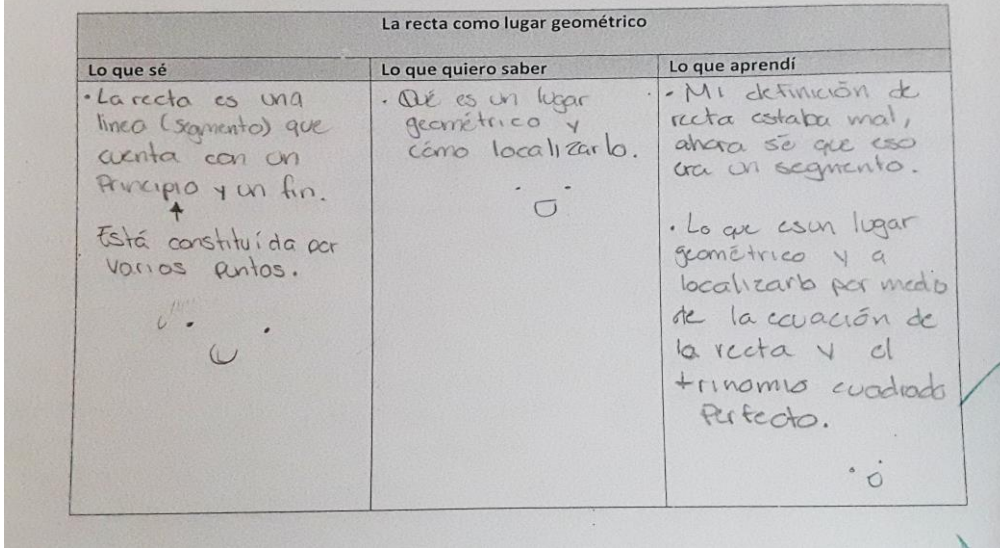 La recta como lugar geométrico
Lo que sé
Lo que quiero saber
Lo que aprendí
• La recta es una
línea (segmento) que
cuenta con un
Principio y un fin.
Está constituída por
varios puntos.
• Qué es un lugar
geométrico y
cómo localizarlo.
• Mi definición de
recta estaba mal,
ahora sé que eso
era un segmento.
• Lo que es un lugar
geométrico y a
localizarlo por medio
de la ecuación de
la recta y el
trinomio cuadrado
Perfecto.